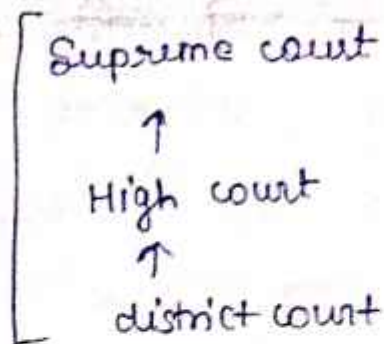 Supreme court
↑
High court
↑
district court